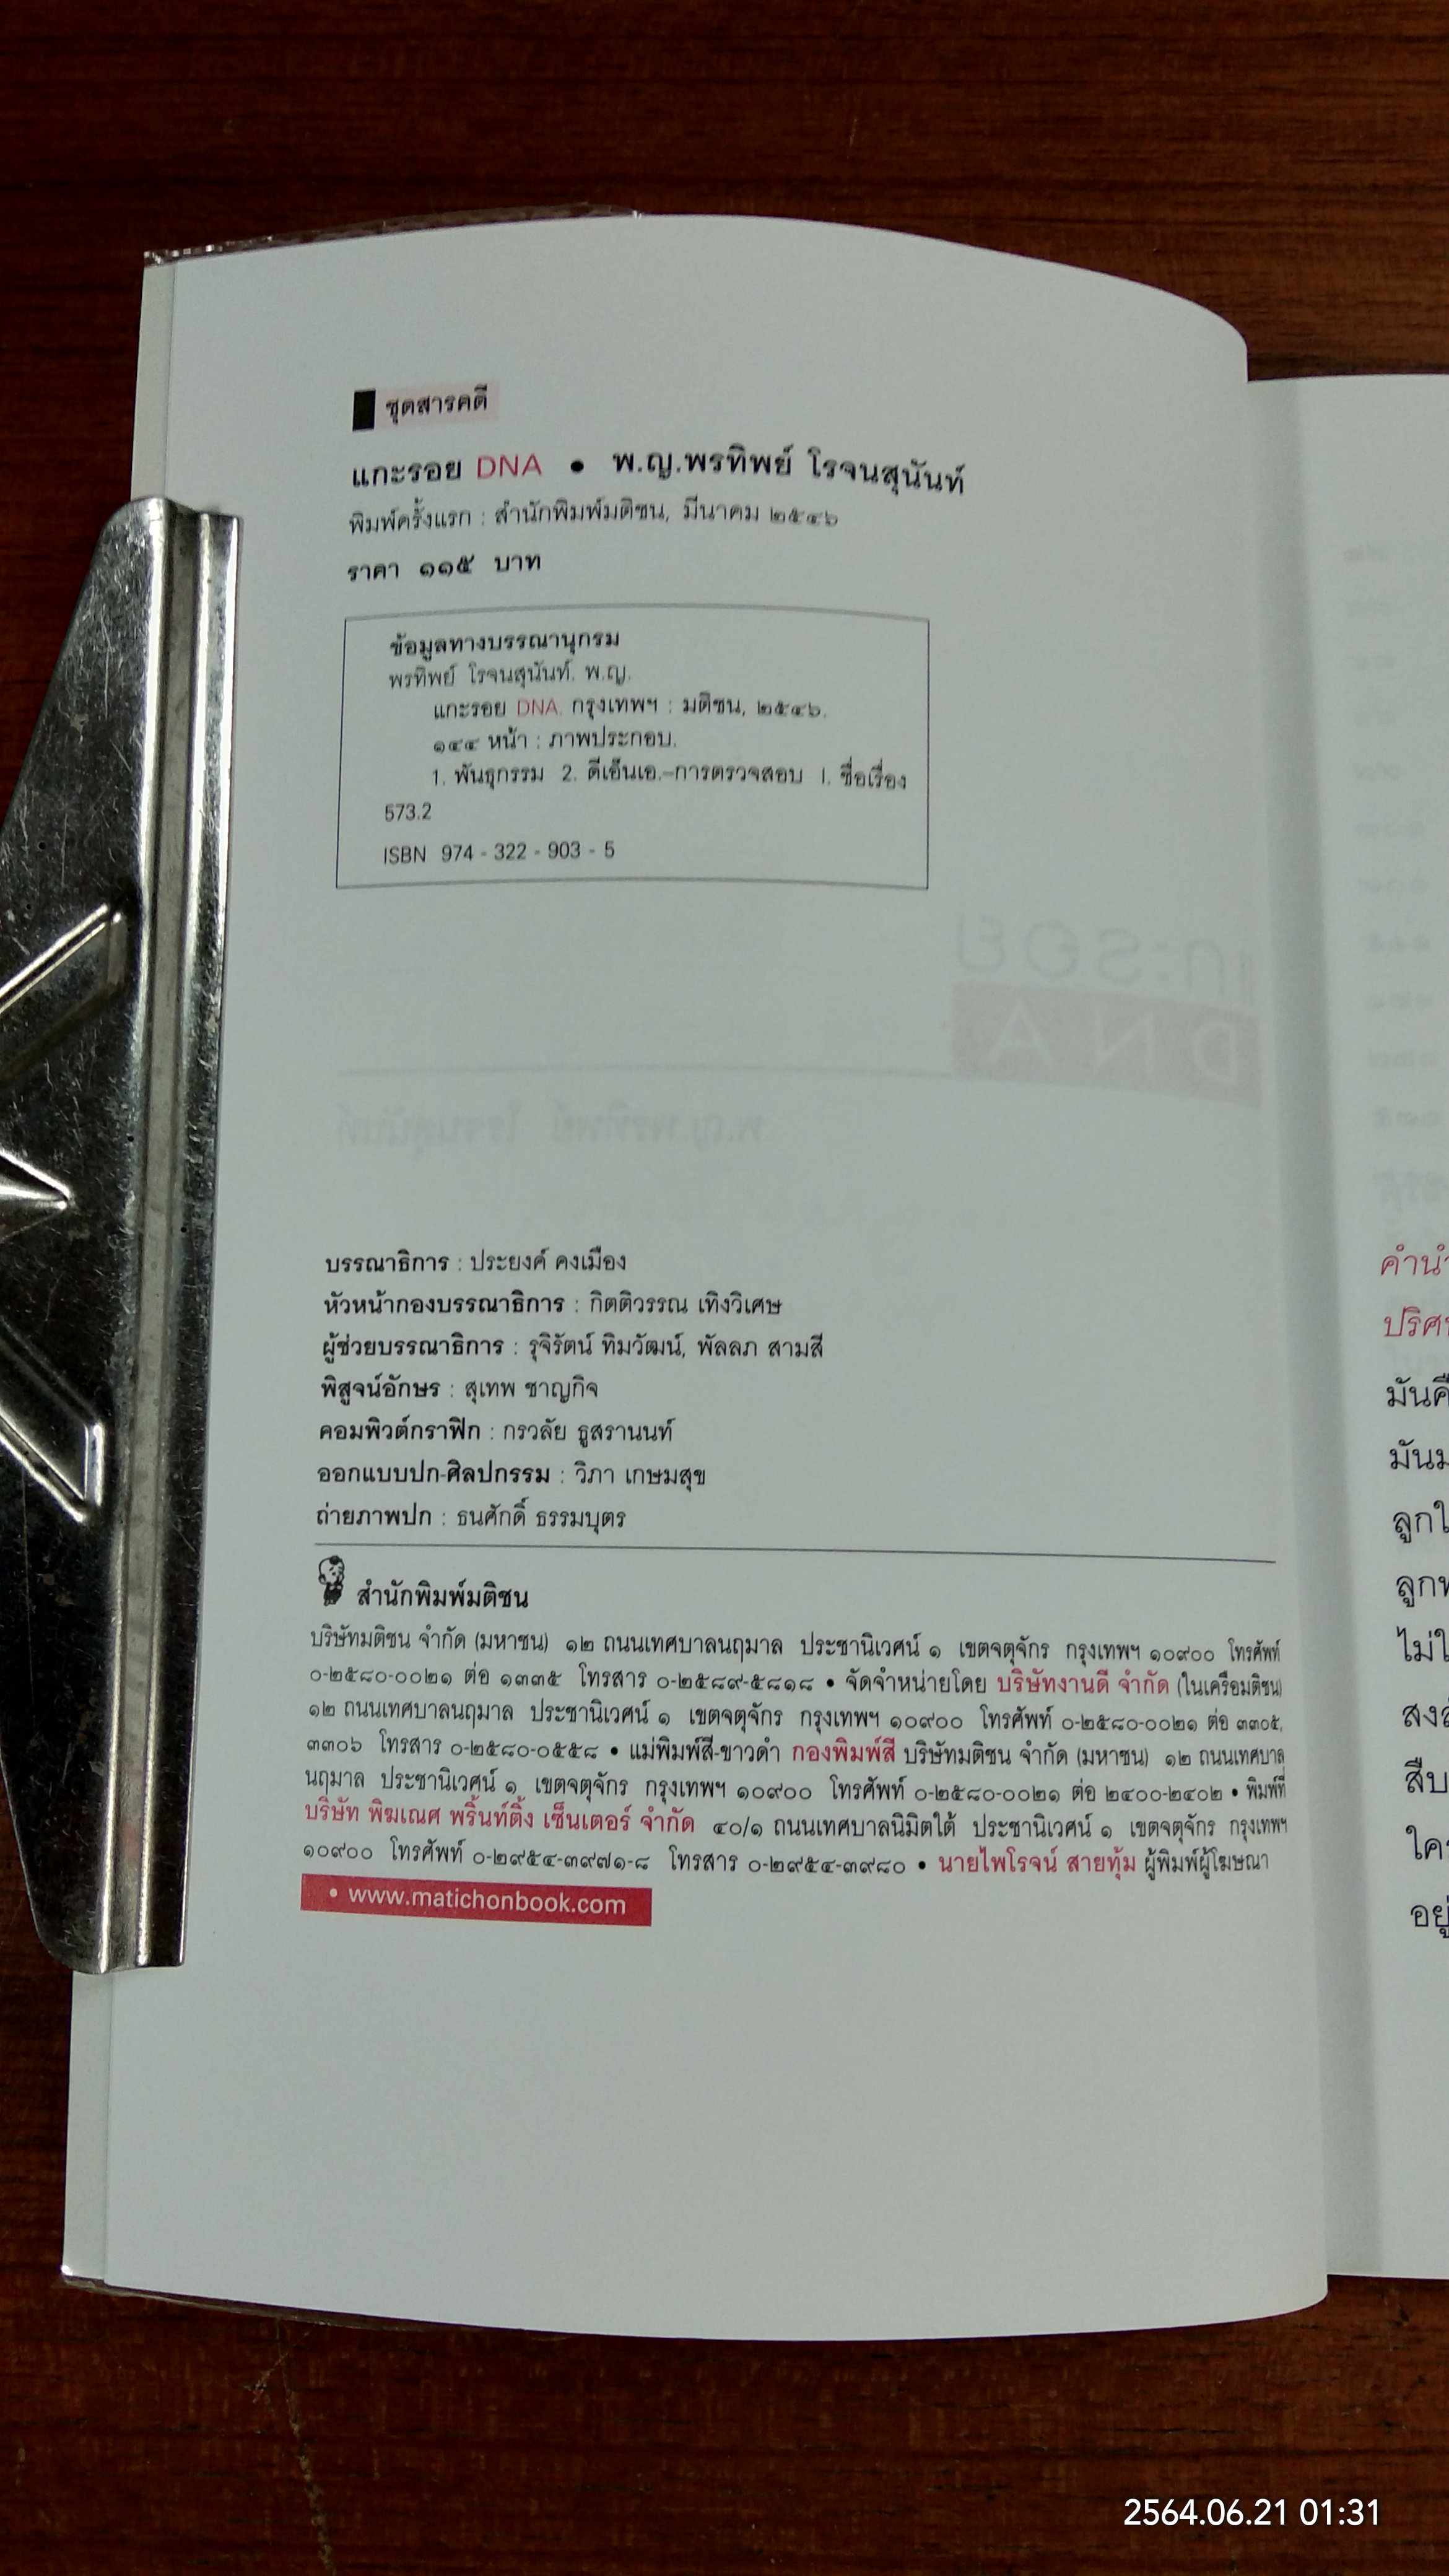 ชุดสารคดี
แกะรอย DNA • พ.ญ.พรทิพย์ โรจนสุนันท์
พิมพ์ครั้งแรก : สำนักพิมพ์มติชน, มีนาคม ๒๕๔๖
ราคา ๑๑๕ บาท
ข้อมูลทางบรรณานุกรม
พรทิพย์ โรจนสุนันท์. พ.ญ.
แกะรอย DNA. กรุงเทพฯ : มติชน, ๒๕๔๖.
๑๔๔ หน้า : ภาพประกอบ.
1. พันธุกรรม 2. ดีเอ็นเอ.-การตรวจสอบ I. ชื่อเรื่อง
573.2
ISBN 974 - 322 - 903 - 5
บรรณาธิการ : ประยงค์ คงเมือง
หัวหน้ากองบรรณาธิการ : กิตติวรรณ เทิงวิเศษ
ผู้ช่วยบรรณาธิการ : รุจิรัตน์ ทิมวัฒน์, พัลลภ สามสี
พิสูจน์อักษร : สุเทพ ชาญกิจ
คอมพิวต์กราฟิก : กรวลัย ธูสรานนท์
ออกแบบปก-ศิลปกรรม : วิภา เกษมสุข
ถ่ายภาพปก : ธนศักดิ์ ธรรมบุตร
สำนักพิมพ์มติชน
บริษัทมติชน จำกัด (มหาชน) ๑๒ ถนนเทศบาลนฤมาล ประชานิเวศน์ ๑ เขตจตุจักร กรุงเทพฯ ๑๐๙๐๐ โทรศัพท์
๐-๒๕๘๐-๐๐๒๑ ต่อ ๑๓๓๕ โทรสาร ๐-๒๕๘๙-๕๘๑๘ • จัดจำหน่ายโดย บริษัทงานดี จำกัด (ในเครือมติชน)
๑๒ ถนนเทศบาลนฤมาล ประชานิเวศน์ ๑ เขตจตุจักร กรุงเทพฯ ๑๐๙๐๐ โทรศัพท์ ๐-๒๕๘๐-๐๐๒๑ ต่อ ๓๓๐๕,
๓๓๐๖ โทรสาร ๐-๒๕๘๐-๐๕๕๘ • แม่พิมพ์สี-ขาวดำ กองพิมพ์สี บริษัทมติชน จำกัด (มหาชน) ๑๒ ถนนเทศบาล
นฤมาล ประชานิเวศน์ ๑ เขตจตุจักร กรุงเทพฯ ๑๐๙๐๐ โทรศัพท์ ๐-๒๕๘๐-๐๐๒๑ ต่อ ๒๔๐๐-๒๔๐๒ • พิมพ์ที่
บริษัท พิฆเณศ พริ้นท์ติ้ง เซ็นเตอร์ จำกัด ๔๐/๑ ถนนเทศบาลนิมิตใต้ ประชานิเวศน์ ๑ เขตจตุจักร กรุงเทพฯ
๑๐๙๐๐ โทรศัพท์ ๐-๒๙๕๔-๓๙๗๑-๘ โทรสาร ๐-๒๙๕๔-๓๙๘๐ • นายไพโรจน์ สายทุ้ม ผู้พิมพ์ผู้โฆษณา
• www.matichonbook.com
มันคื
ลูก
สืบ
อยู่
2564.06.21 01:31